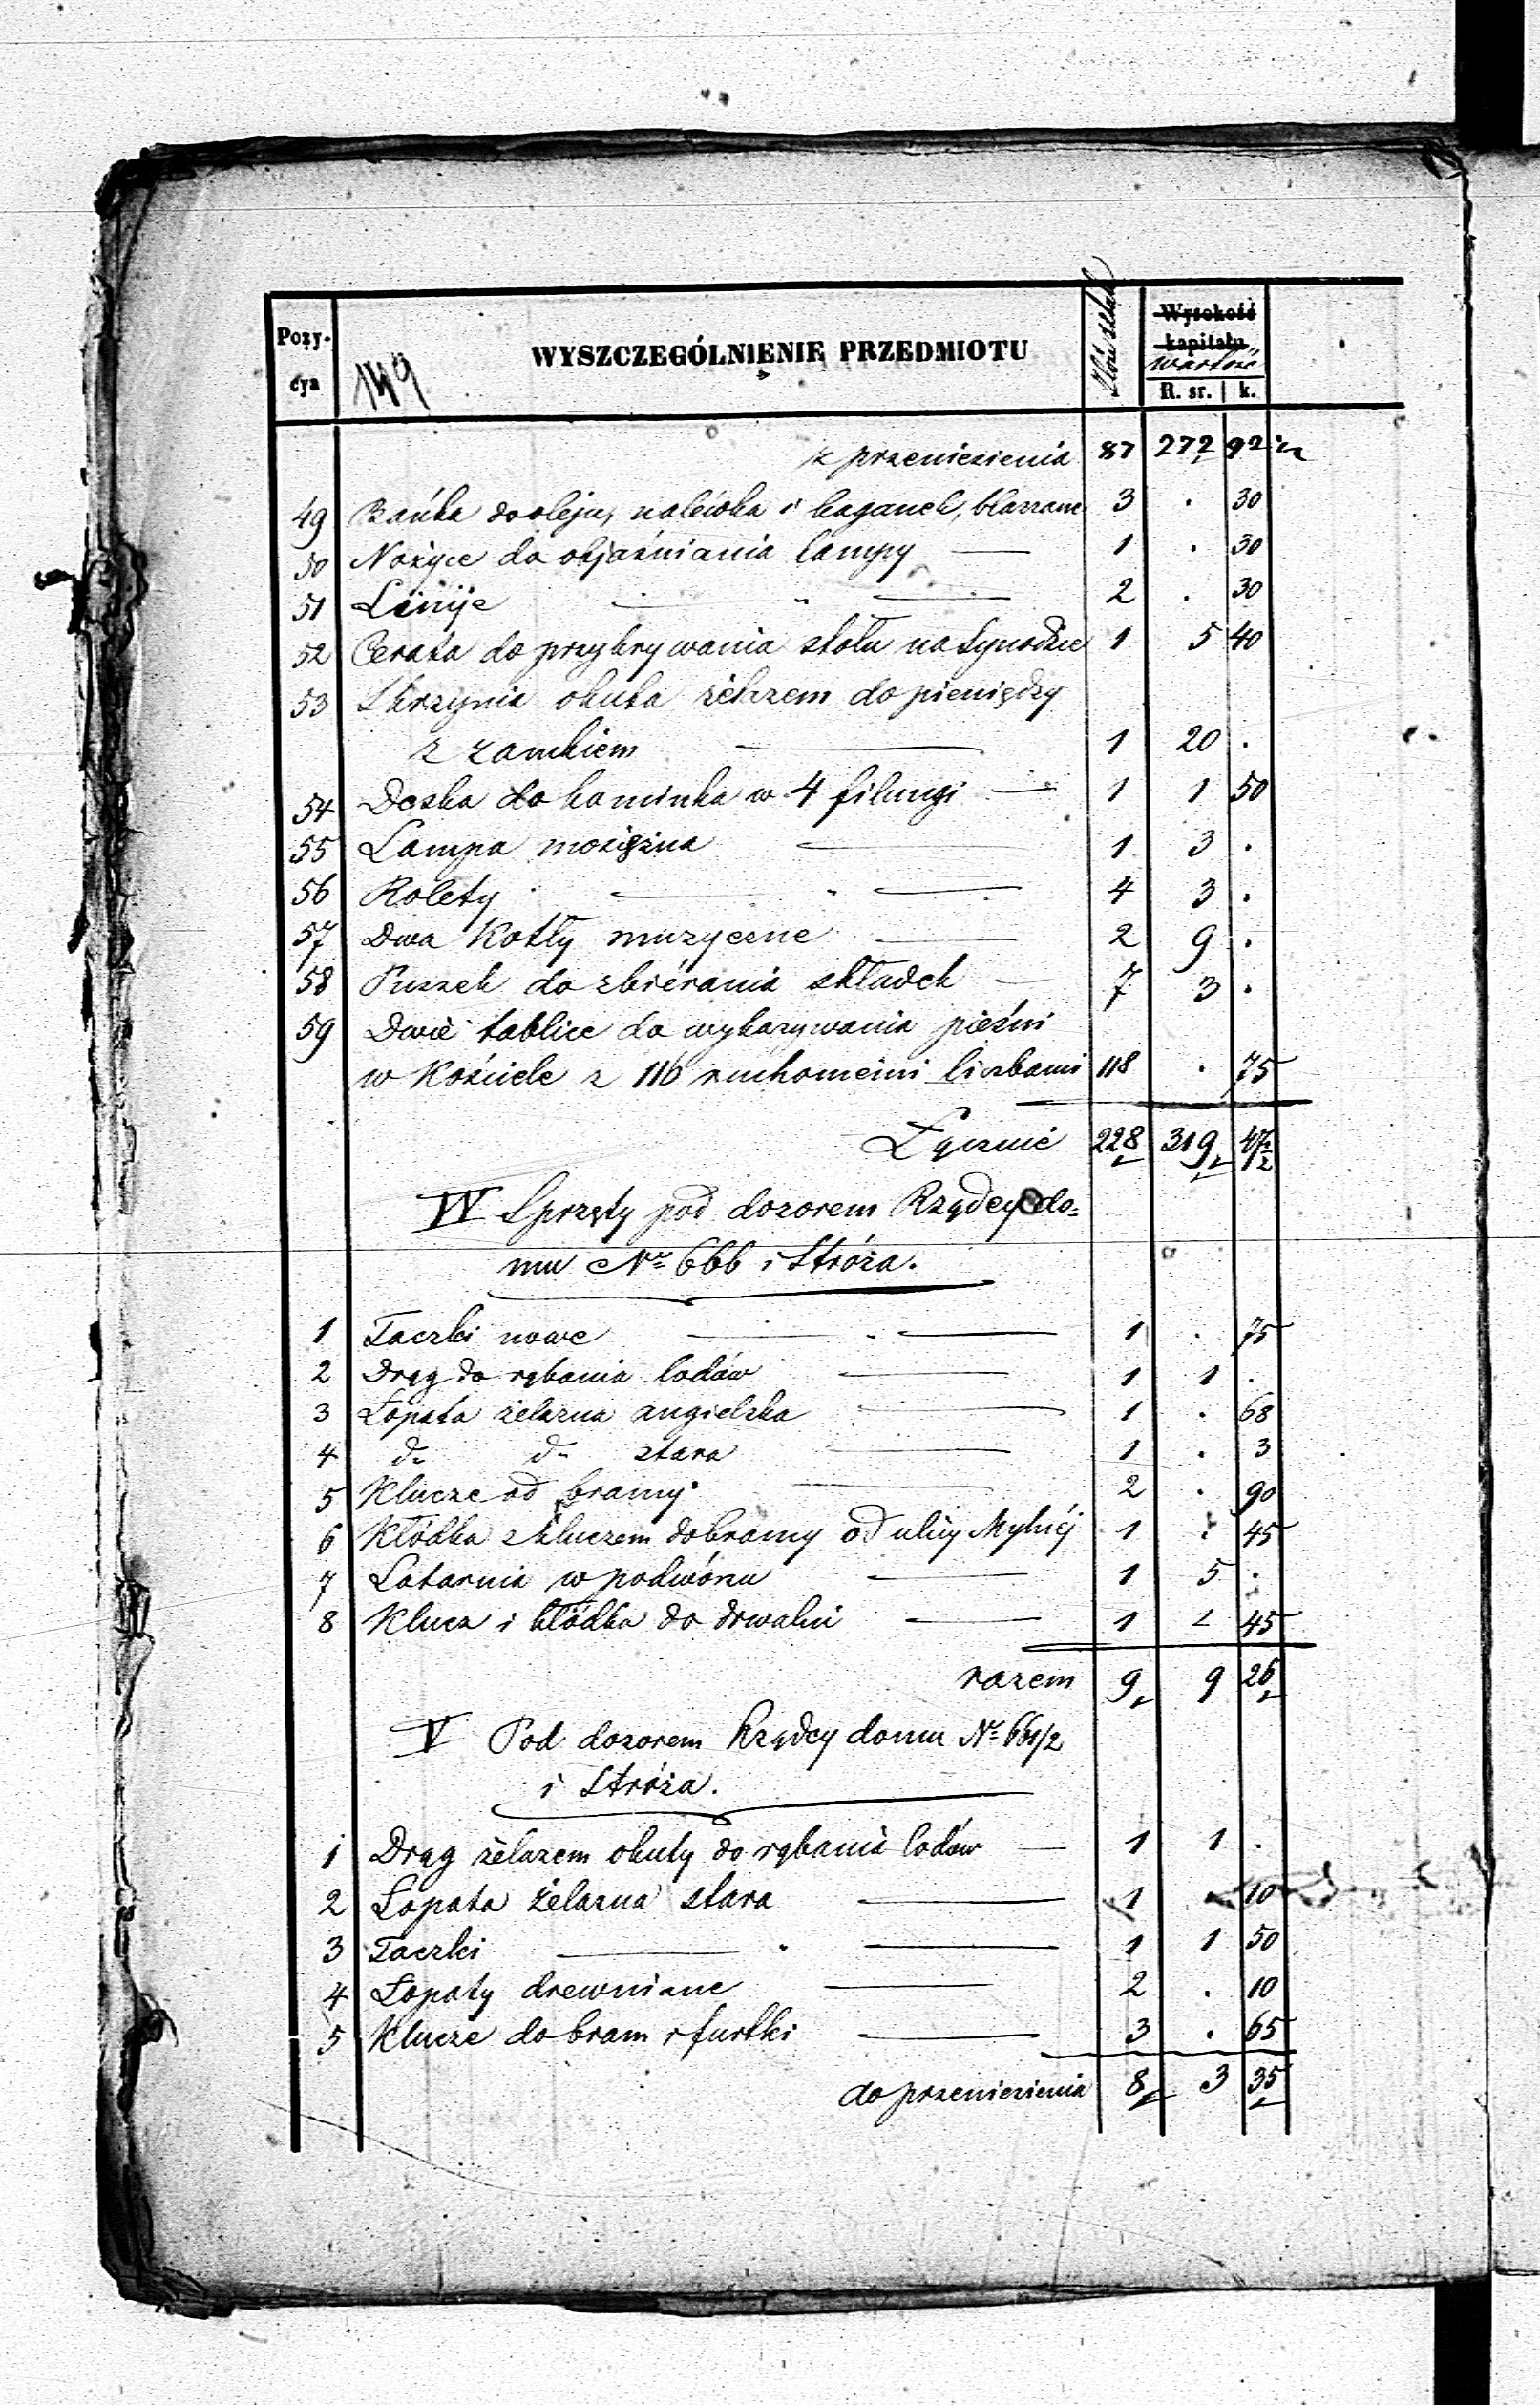 Pozy-
cya
149
WYSZCZEGÓLNIENIE PRZEDMIOTU
Ilość sztuk
Wysokość
kapitału
wartość
R. sr. k.
z przeniesienia 87 272 92 1/2
49 Bańka do oleju, nalewka i kaganek, blaszane 3 . 30
50 Nożyce do objaśniania lampy 1 . 30
51 Linije 2 . 30
52 Cerata do przykrywania stołu na Synodzie 1 5 40
53 Skrzynia okuta żelazem do pieniędzy
z zamkiem 1 20 .
54 Deska do kominka w 4 filungi 1 1 50
55 Lampa mosiężna 1 3 .
56 Rolety 4 3 .
57 Dwa Kotły muzyczne 2 9 .
58 Puszek do zbiérania składek 7 3 .
59 Dwie tablice do wykazywania pieśni
w Kościele z 116 ruchomemi liczbami 118 . 75
Łącznie 228 319 47 1/2
IV Sprzęty pod dozorem Rządcy do=
mu No 666 i Stróża.
1 Taczki nowe 1 . 75
2 Drąg do rąbania lodów 1 1 .
3 Łopata żelazna angielska 1 . 68
4 do do stara 1 . 3
5 Klucze od bramy 2 . 90
6 Kłódka z kluczem do bramy od ulicy Mylnéj 1 . 45
7 Latarnia w podwórzu 1 5 .
8 Klucz i kłódka do drwalni 1 . 45
razem 9 9 26
V Pod dozorem Rządcy domu No 661/2
i Stróża.
1 Drąg żelazem okuty do rąbania lodów 1 1 .
2 Łopata żelazna stara 1 . 10
3 Taczki 1 1 50
4 Łopaty drewniane 2 . 10
5 Klucze do bram i furtki 3 . 65
do przeniesienia 8 3 35